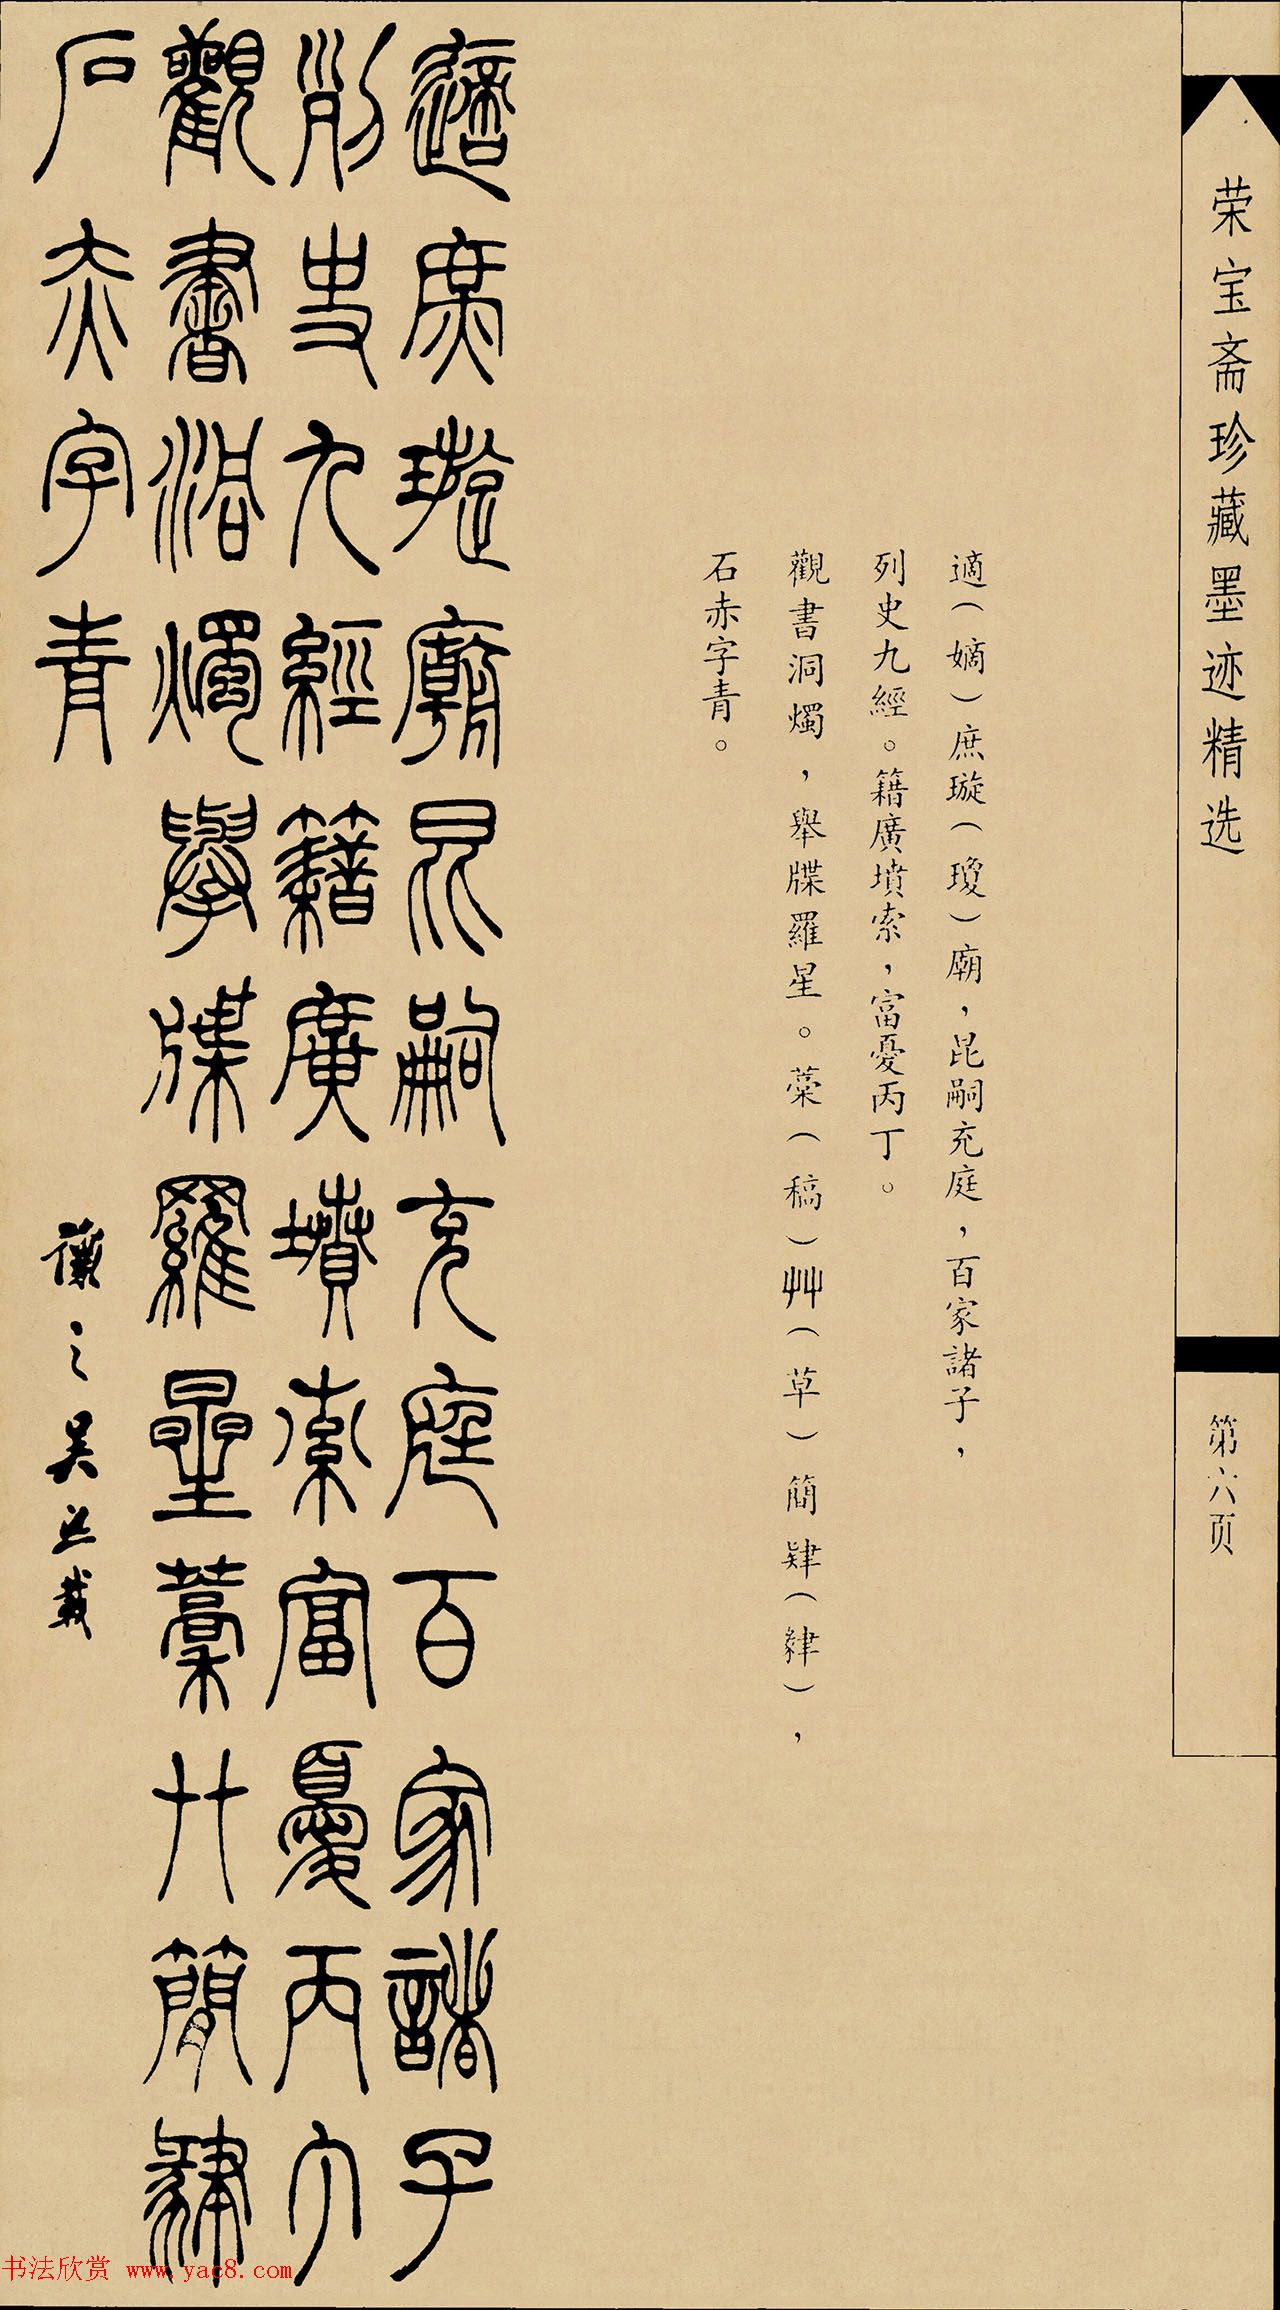 荣宝斋珍藏墨迹精选
第六页
適（嫡）庶璇（瓊）廟，昆嗣充庭，百家諸子，
列史九經。籍廣墳索，富憂丙丁。
觀書洞燭，舉牒羅星。藁（稿）艸（草）簡肄（肄），
石赤字青。
適庶璇廟昆嗣充庭百家諸子
列史九經籍廣墳索富憂丙丁
觀書洞燭舉牒羅星藁艸簡肄
石赤字青
讓之吳熙載
书法欣赏 www.yac8.com